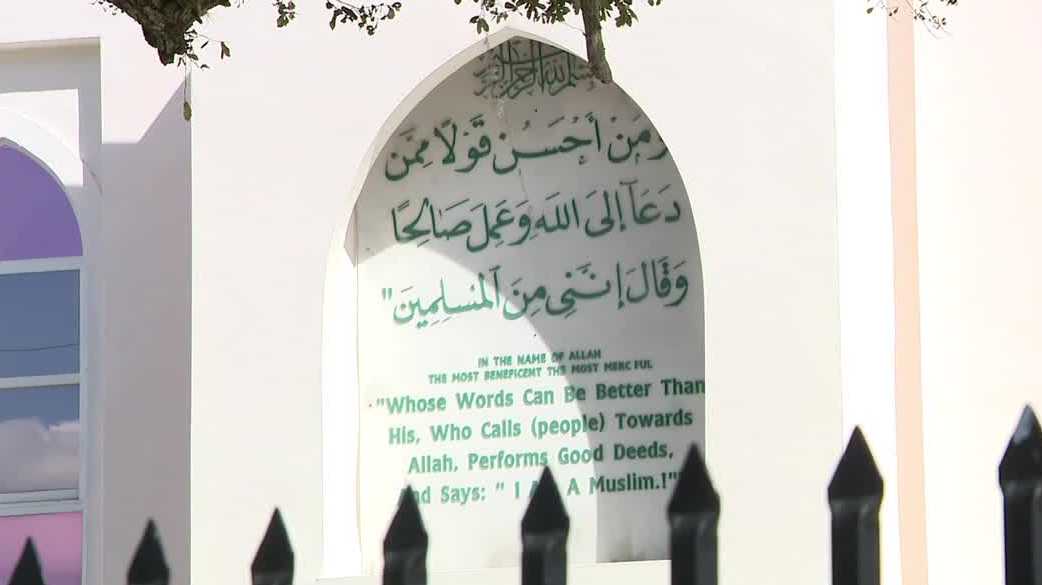 بسم الله الرحمن الرحيم
وَمَنْ أَحْسَنُ قَوْلًا مِمَّن
دَعَآ إِلَى اللَّهِ وَعَمِلَ صَالِحًا
وَقَالَ إِنَّنِي مِنَ ٱلْمُسْلِمِينَ"
IN THE NAME OF ALLAH
THE MOST BENEFICENT THE MOST MERCIFUL
"Whose Words Can Be Better Than
His, Who Calls (people) Towards
Allah, Performs Good Deeds,
And Says: " I Am A Muslim.!"